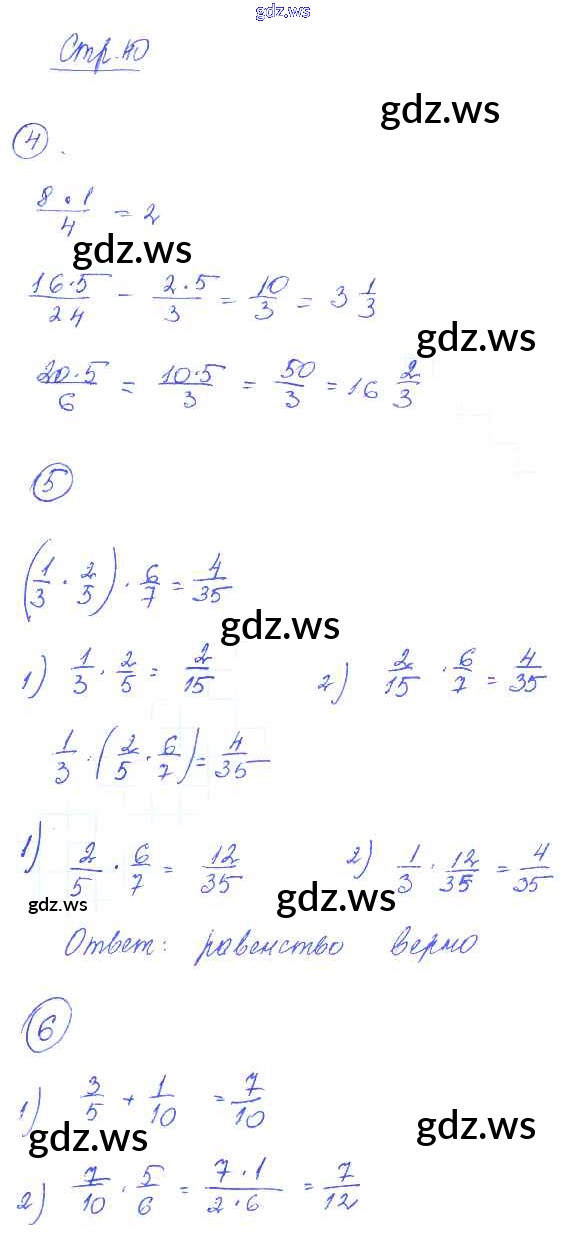 gdz.ws
Стр. 40
gdz.ws
4.
8·1/4 = 2
gdz.ws
16·5/24 - 2·5/3 = 10/3 = 3 1/3
gdz.ws
20·5/6 = 10·5/3 = 50/3 = 16 2/3
5
(1/3 · 2/5) · 6/7 = 4/35
gdz.ws
1) 1/3 · 2/5 = 2/15 2) 2/15 · 6/7 = 4/35
1/3 · (2/5 · 6/7) = 4/35
1) 2/5 · 6/7 = 12/35 2) 1/3 · 12/35 = 4/35
gdz.ws gdz.ws
Ответ: равенство верно
6
1) 3/5 + 1/10 = 7/10
gdz.ws gdz.ws
2) 7/10 · 5/6 = 7·1/2·6 = 7/12